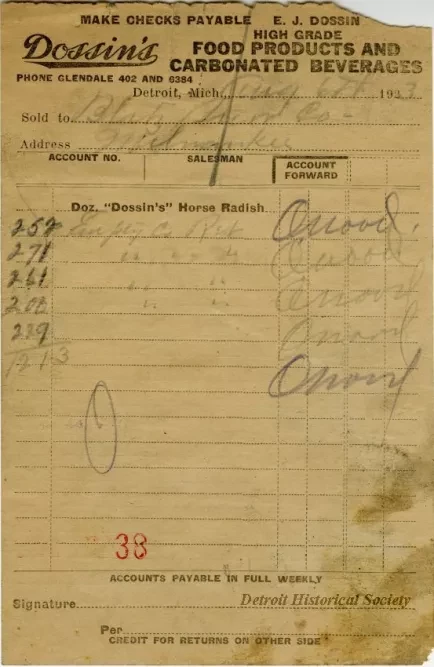 MAKE CHECKS PAYABLE E. J. DOSSIN
Dossin's
HIGH GRADE
FOOD PRODUCTS AND
CARBONATED BEVERAGES
PHONE GLENDALE 402 AND 6384
Detroit, Mich. 1923
Sold to Co
Address Milwaukee
ACCOUNT NO. SALESMAN ACCOUNT FORWARD
Doz. "Dossin's" Horse Radish
252 Empty Co Ret
271 " " "
241 " " "
208 " "
239
1213
38
ACCOUNTS PAYABLE IN FULL WEEKLY
Signature Detroit Historical Society
Per
CREDIT FOR RETURNS ON OTHER SIDE